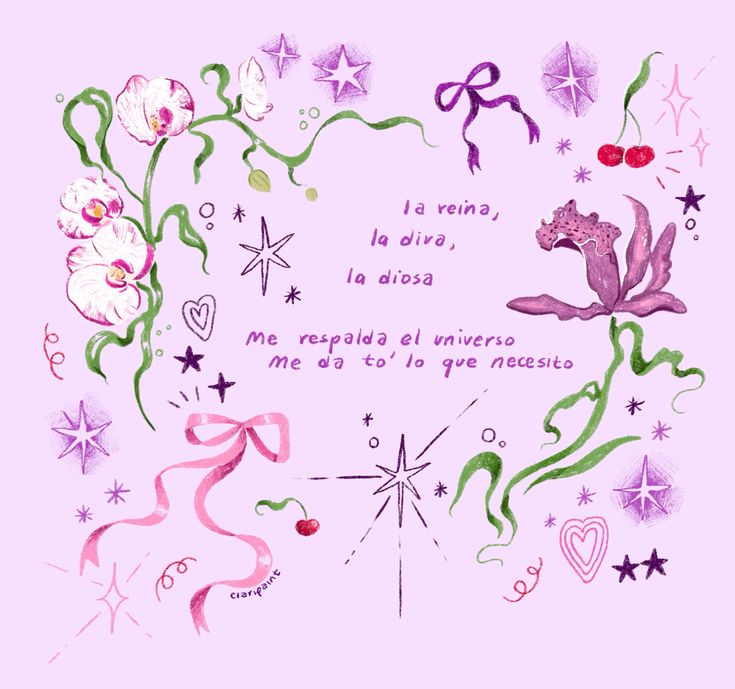 la reina,
la diva,
la diosa
Me respalda el universo
Me da to' lo que necesito
claripaint